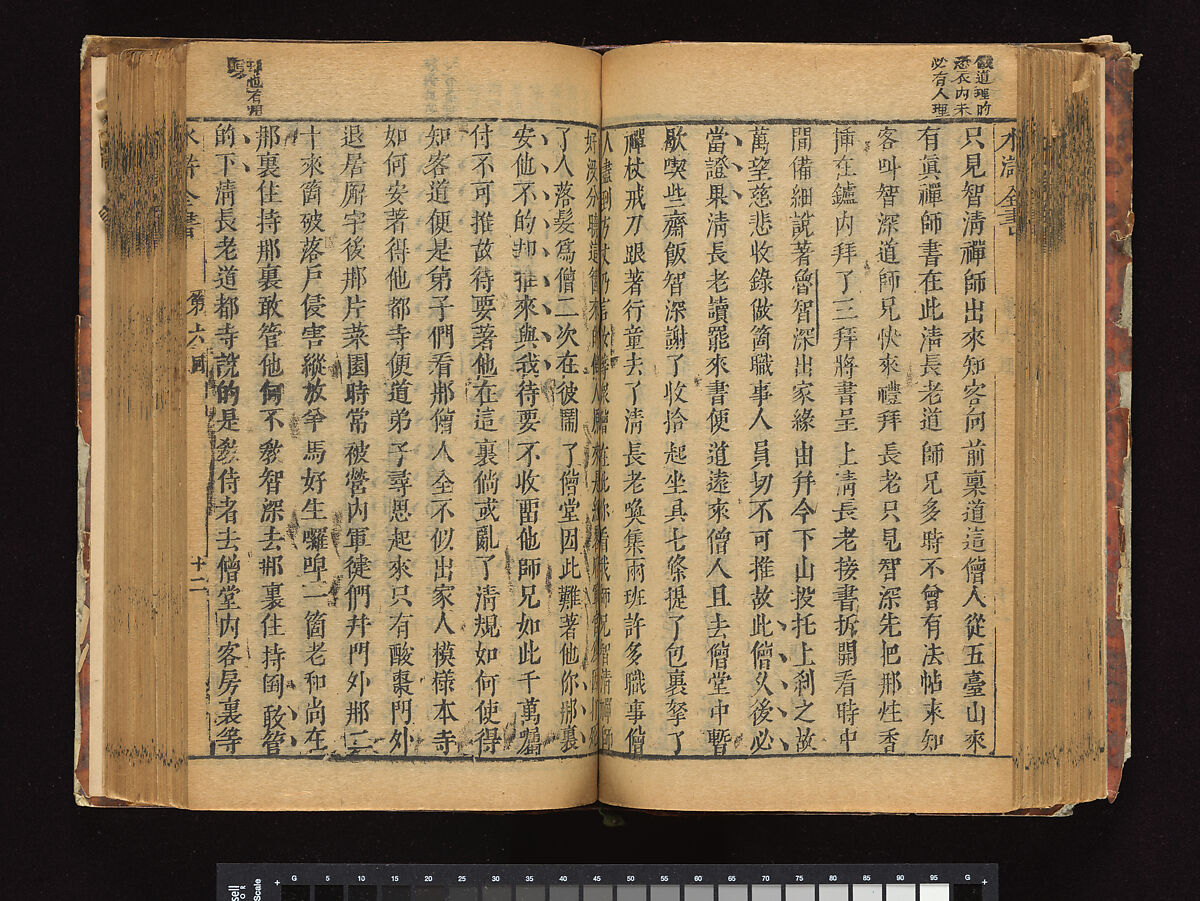 道理的
衣內未
必有人理
水滸全書
只見智清禪師出來知客向前稟道這僧人從五臺山來
有眞禪師書在此清長老道師兄多時不曾有法帖來知
客叫智深道師兄快來禮拜長老只見智深先把那炷香
插在鑪內拜了三拜將書呈上清長老接書拆開看時中
間備細說著魯智深出家緣由幷今下山投托上刹之故
萬望慈悲收錄做箇職事人員切不可推故此僧久後必
當證果清長老讀罷來書便道遠來僧人且去僧堂中暫
歇喫些齋飯智深謝了收拾起坐具七條提了包裹拏了
禪杖戒刀跟著行童去了清長老喚集兩班許多職事僧
了人落髮爲僧二次在彼鬧了僧堂因此難著他你那裏
安他不的却推來與我待要不收留他師兄如此千萬囑
付不可推故待要著他在這裏倘或亂了清規如何使得
知客道便是弟子們看那僧人全不似出家人模樣本寺
如何安著得他都寺便道弟子尋思起來只有酸棗門外
退居廨宇後那片菜園時常被營內軍徤們幷門外那二
十來箇破落戶侵害縱放羊馬好生囉唣一箇老和尚在
那裏住持那裏敢管他何不敎智深去那裏住持倒敢管
的下清長老道都寺說的是敎侍者去僧堂內客房裏等
水滸全書 第六囘 十二
也有用